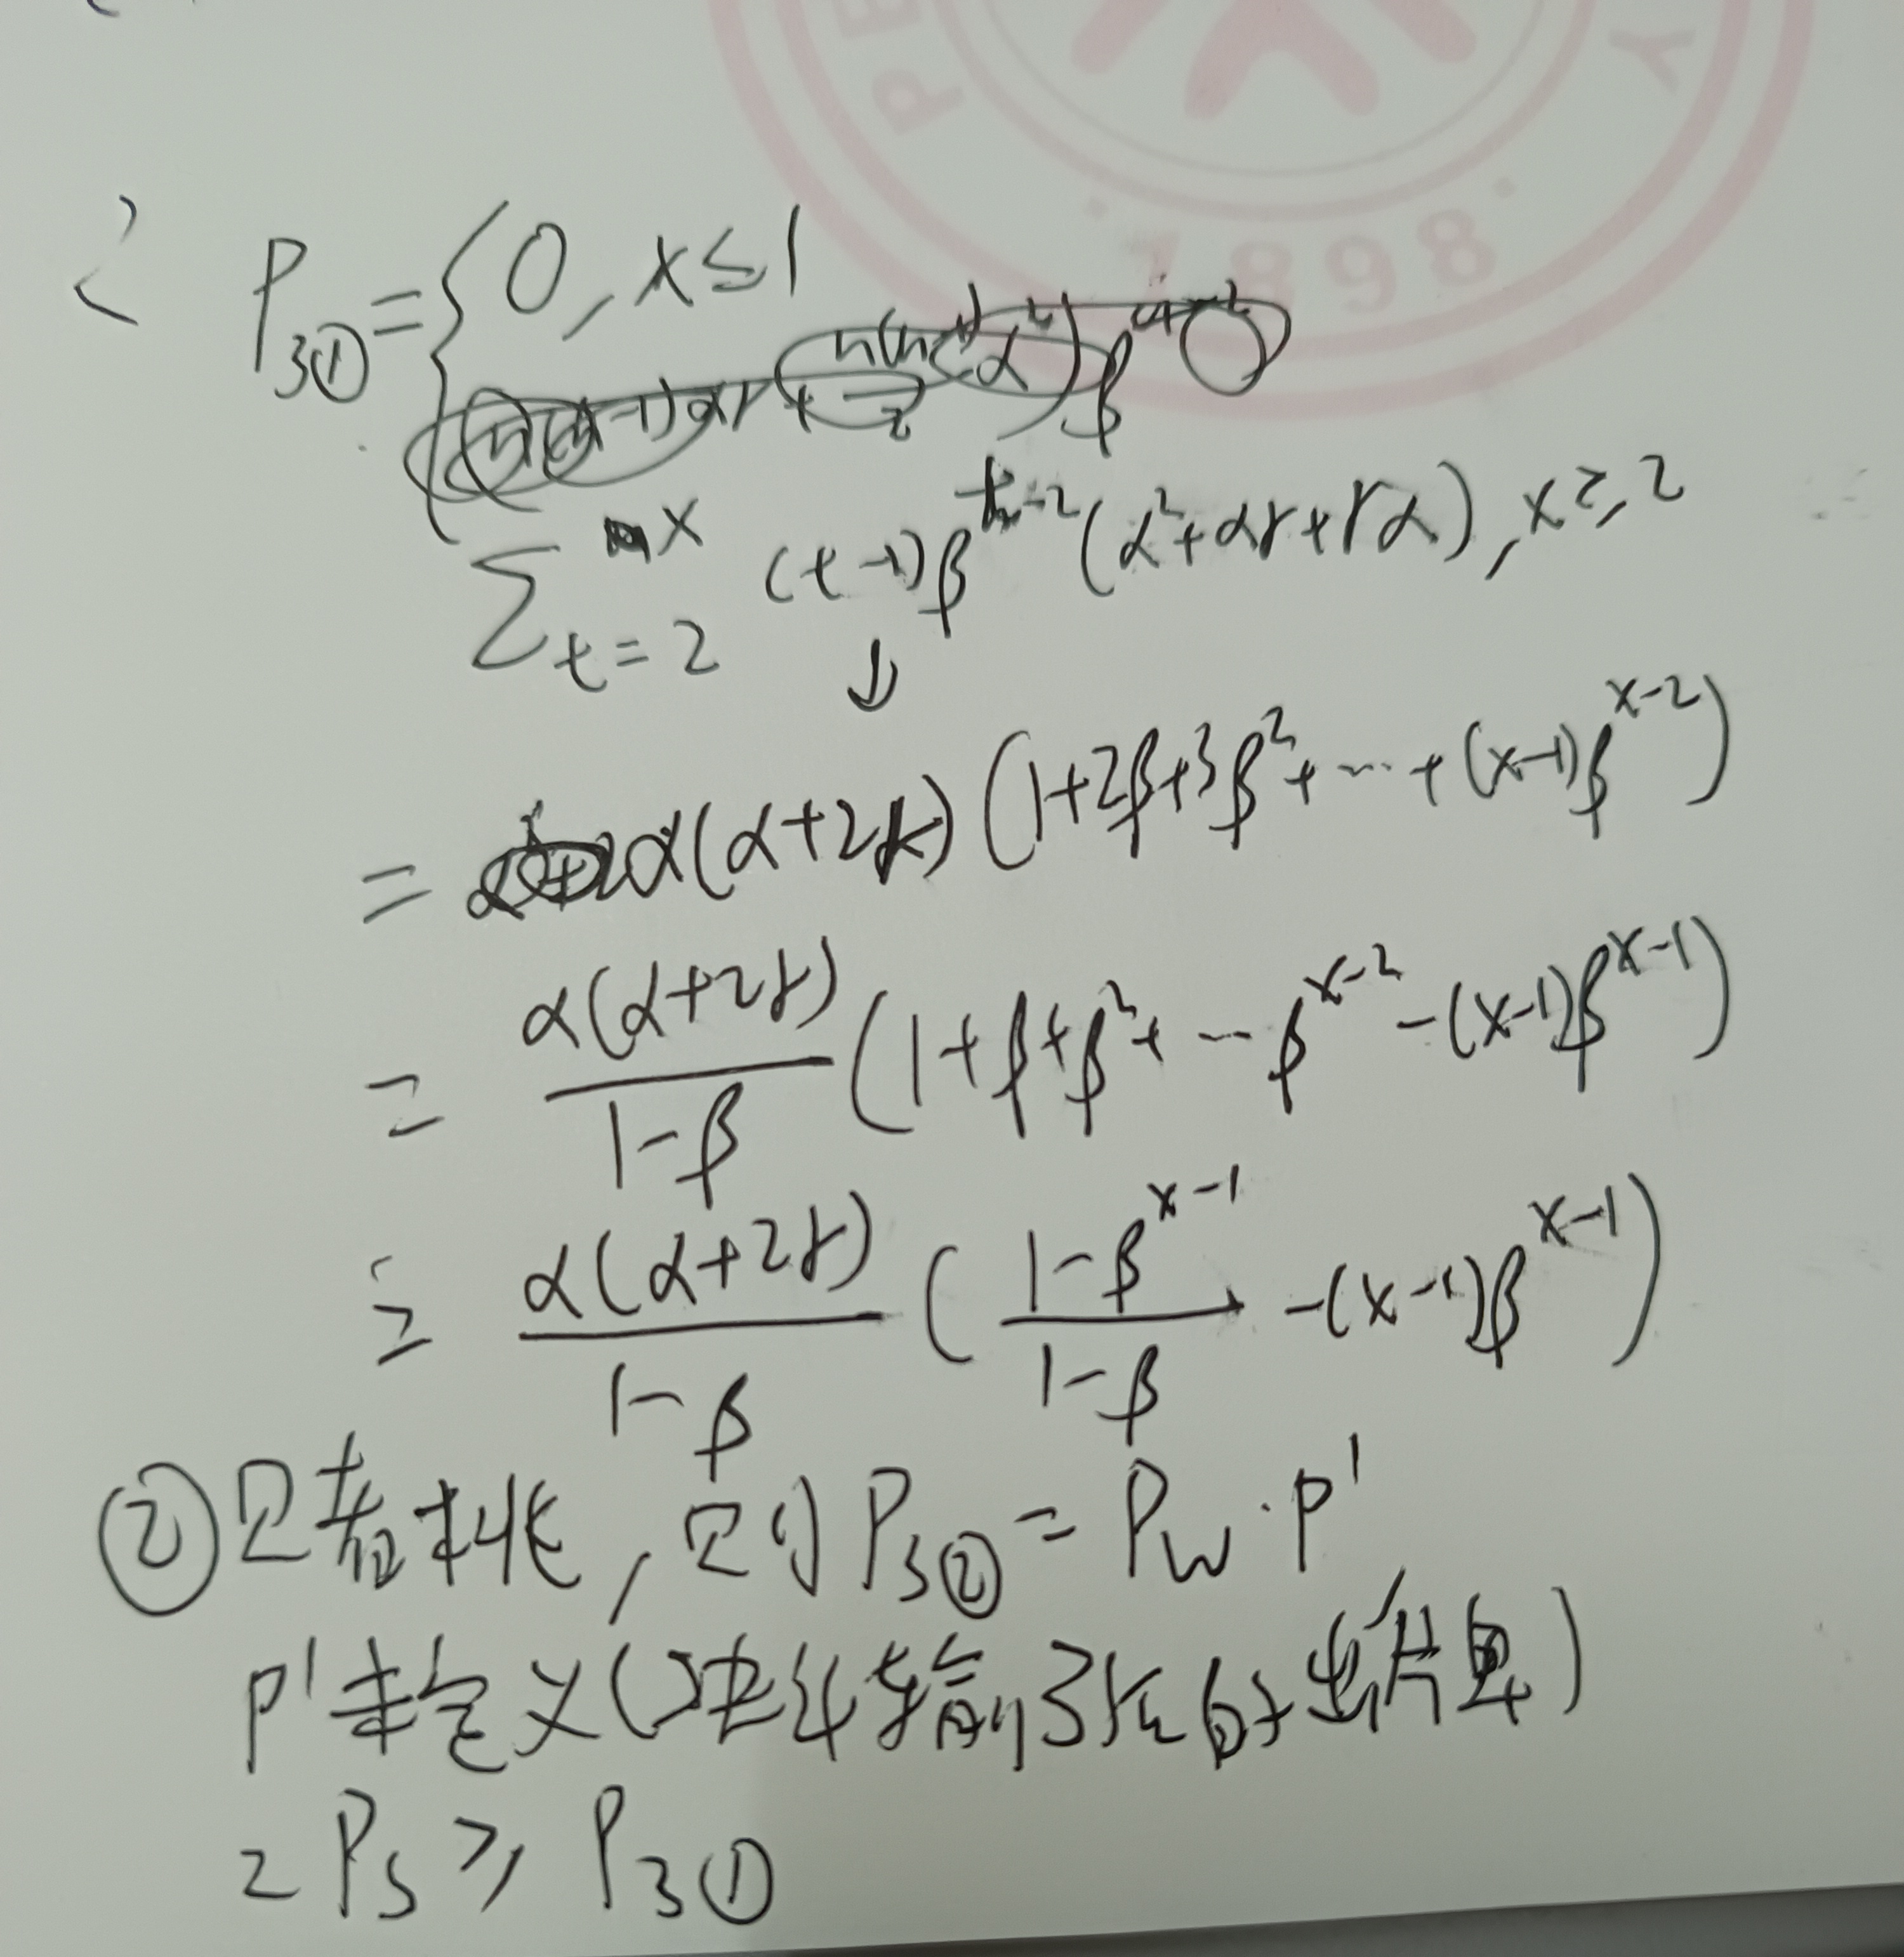 PE Y
· 1898 ·
∴ P₃① = { 0, x≤1
∑_{t=2}^{x} (t-1)β^{t-2}(α²+αγ+γα), x≥2
↓
= α(α+2γ)(1+2β+3β²+…+(x-1)β^{x-2})
= α(α+2γ)/(1-β) (1+β+β²+…β^{x-2}-(x-1)β^{x-1})
= α(α+2γ)/(1-β) ((1-β^{x-1})/(1-β) -(x-1)β^{x-1})
② 只 挑, 则 P₃② = P_W · P'
P'未定义( 输了 的 片单)
P_S ≥ P₃①